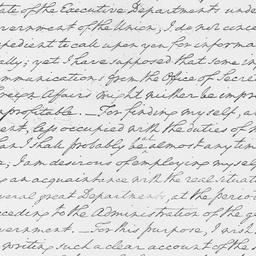 tate of the Executive Department under
overnment of the Union; I do not conce
pedient to call upon you for informa
ally; yet I have supposed that some in
mmunications from the Office of Secre
Foreign Affairs might neither be impro
nprofitable. — For finding myself, a
ent, less occupied with the duties of
an I shall probably be almost any tim
e; I am desirous of employing myself
g an acquaintance with the real situat
veral great Departments, at the period
ceding to the Administration of the ge
vernment. — For this purpose, I wish
writing such a clear account of the